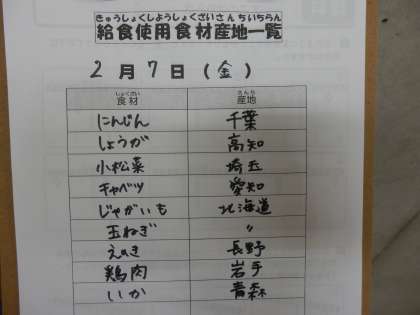 きゅうしょくしようしょくざいさんちいちらん
給食使用食材産地一覧
2月7日(金)
しょくざい さんち
食材 産地
にんじん 千葉
しょうが 高知
小松菜 埼玉
キャベツ 愛知
じゃがいも 北海道
玉ねぎ 〃
えのき 長野
鶏肉 岩手
いか 青森